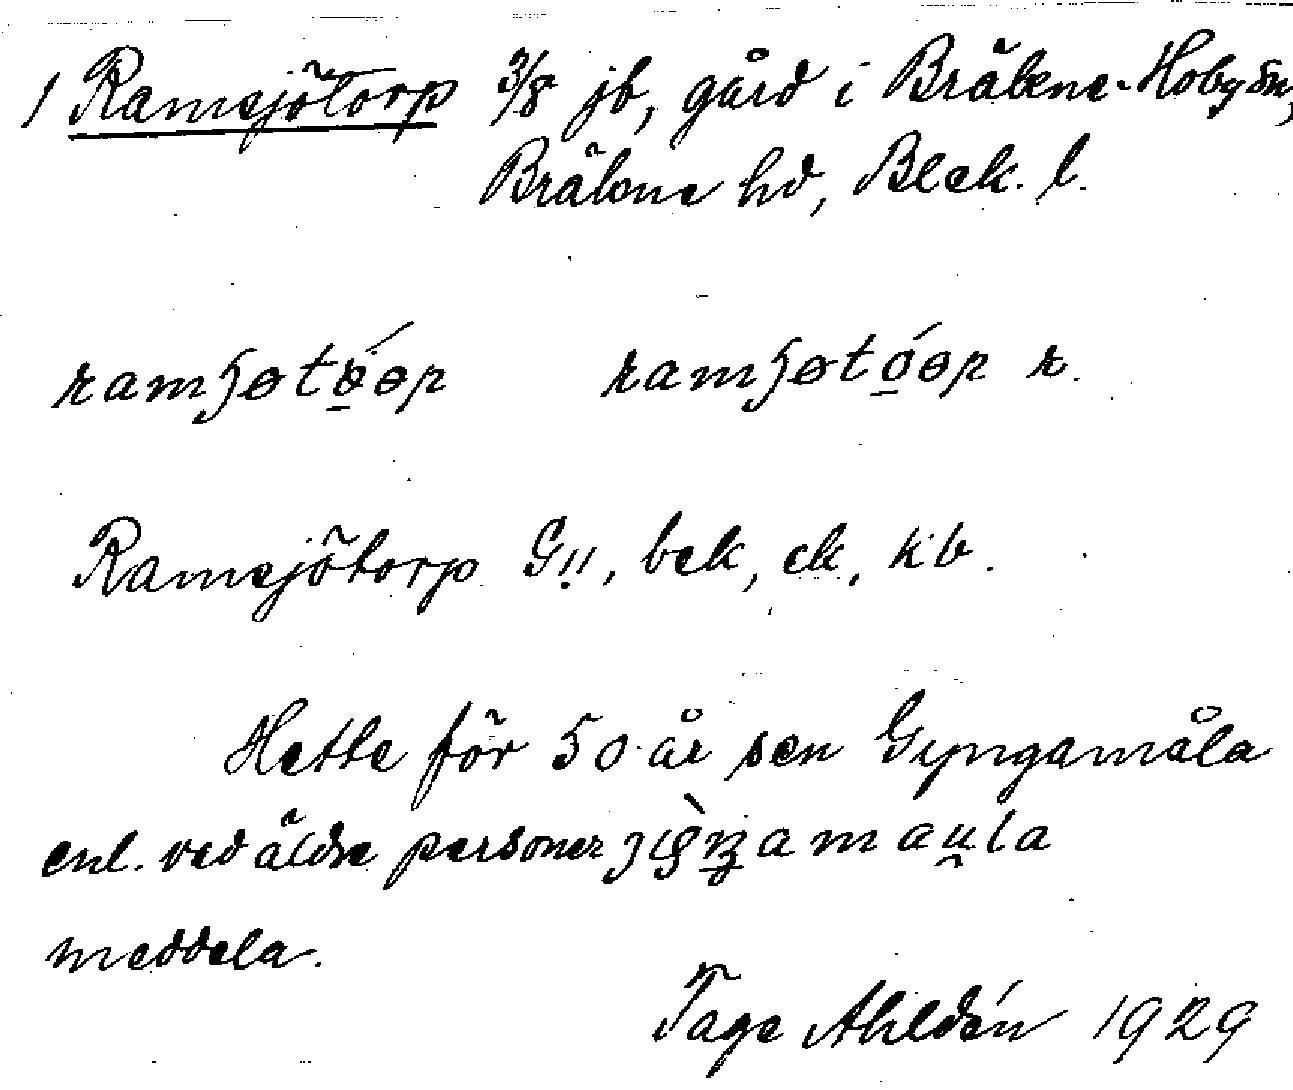 1 Ramsjötorp 3/8 jb, gård i Bräkne-Hoby sn,
Bräkne hd, Blek. l.
ramʃøtó̱ɵp ramʃøtó̱ɵp r.
Ramsjötorp G!!, bek, ek, kb.
Hette för 50 år sen Gyngamåla
enl. vad äldre personer
meddela.
Tage Ahldén 1929